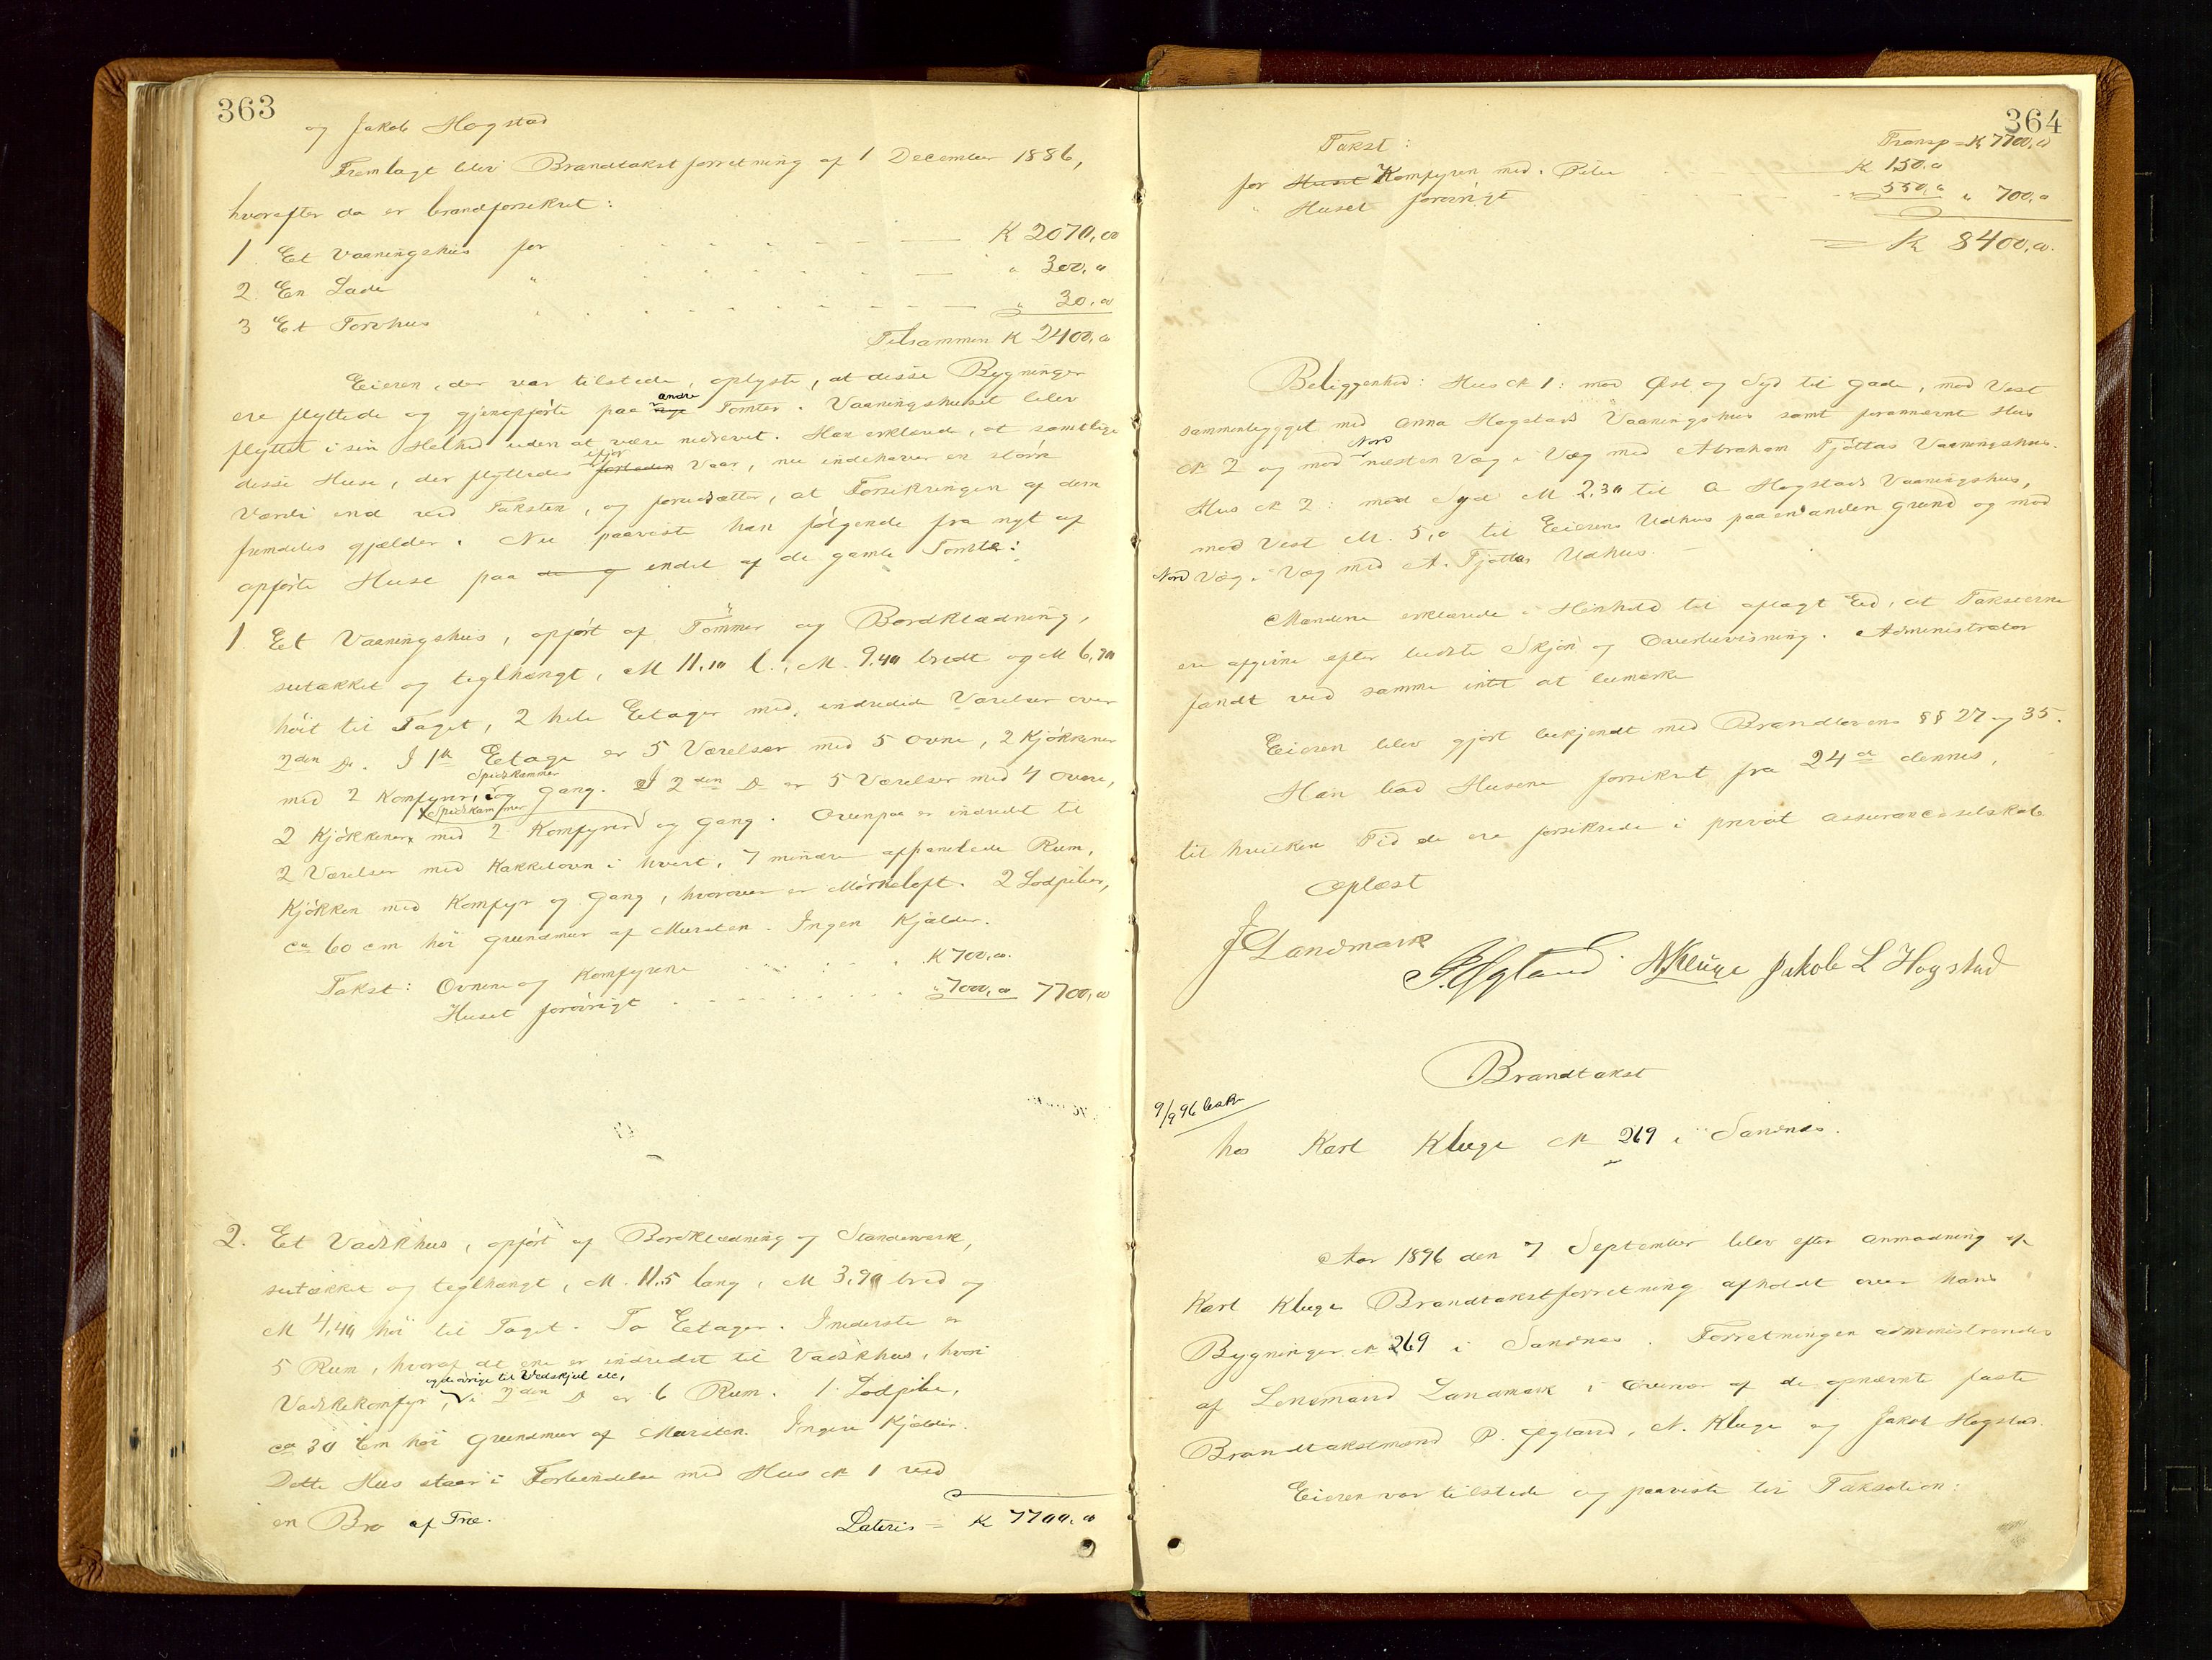 363
og Jakob Hogstad
Fremlagt blev Brandtakstforretning af 1 December 1886,
hvorefter da er brandforsikret:
1 Et Vaaningshus for K 2070,00
2 En Lade " " 300,00
3 Et Torvhus " " 30,00
Tilsammen K 2400,00
Eieren, der var tilstede, oplyste, at disse Bygninger
ere flyttede og gjenopførte paa nye andre Tomter. Vaaningshuset blev
flyttet i sin Helhed uden at være nedrevet. Han erklærede, at samtlige
disse Huse, der flyttedes forleden ifjor Vaar, nu indehaver en større
Værdi end ved Taksten, og forudsætter, at Forsikringen af dem
fremdeles gjælder. Nu paaviste han følgende fra nyt af
opførte Huse paa de g endel af de gamle Tomter:
1. Et Vaaningshus, opført af Tømmer og Bordklædning,
sutækket og teglhængt, M 11,10 l., M. 9,40 bredt og M 6,30
høit til Taget, 2 hele Etager med indredede Værelser over
2den Do. I 1ste Etage er 5 Værelser med 5 Ovne, 2 Kjøkkener
med 2 Komfyrer, Spiskammer og Gang. I 2den Do er 5 Værelser med 4 Ovne,
2 Kjøkkener, Spiskammer med 2 Komfyrer og Gang. Ovenpaa er indredt til
2 Værelser med Kakkelovn i hvert, 7 mindre appanelede Rum,
Kjøkken med Komfyr og Gang, hvorover er Mørkeloft. 2 Lodpiber,
ca 60 cm høi Grundmur af Mursten. Ingen Kjælder.
Takst: Ovnene og Komfyrene K 700,00
Huset forøvrigt " 7000,00 7700,00
2. Et Vadskhus, opført af Bordklædning og Standerverk,
sutækket og teglhængt, M. 11.5 lang, M 3,90 bred og
M 4,40 høi til Taget. To Etager. I nederste er
5 Rum, hvoraf det ene er indredet til Vadskhus, hvori
Vadskekomfyr, og de øvrige til Vedskjul etc, i 2den Do er 6 Rum. 1 Lodpibe,
ca 30 Cm høi Grundmur af Mursten. Ingen Kjælder.
Dette Hus staar i Forbindelse med Hus No 1 ved
en Bro af Træ.
Lateris = K 7700,00
364
Takst: Transp = K 7700,00
for Huset Komfyren med Pibe K 150,00
" Huset forøvrigt " 550,00 " 700,00
= K 8400,00.
Beliggenhed: Hus No 1: mod Øst og Syd til Gade, mod Vest
sammenbygget med Anna Hogstads Vaaningshus samt forannævnt Hus
No 2 og mod Nord næsten Væg i Væg med Abraham Tjøttas Vaaningshus.
Hus No 2: mod Syd M 2,30 til A Hogstads Vaaningshus,
mod Vest M. 5,0 til Eierens Udhus paa en anden Grund og mod
Nord Væg i Væg med A. Tjøttas Udhus. —
Mændene erklærede i Henhold til aflagt Ed, at Taksterne
ere afgivne efter bedste Skjøn og Overbevisning. Administrator
fandt ved samme intet at bemærke
Eieren blev gjort bekjendt med Brandlovens §§ 27 og 35.
Han bad Husene forsikret fra 24de dennes,
til hvilken Tid de ere forsikrede i privat Assuranceselskab
Oplæst
J Landmark
P. Ogland N Kluge Jakob L Hogstad
Brandtakst
9/9 96 besk
hos Karl Kluge No 269 i Sandnes.
Aar 1896 den 7 September blev efter Anmodning af
Karl Kluge Brandtakstforretning afholdt over hans
Bygninger No 269 i Sandnes. Forretningen administreredes
af Lensmand Landmark i Overvær af de opnævnte faste
Brandtakstmænd P. Øgland, N. Kluge og Jakob Hogstad.
Eieren var tilstede og paaviste til Taksation: